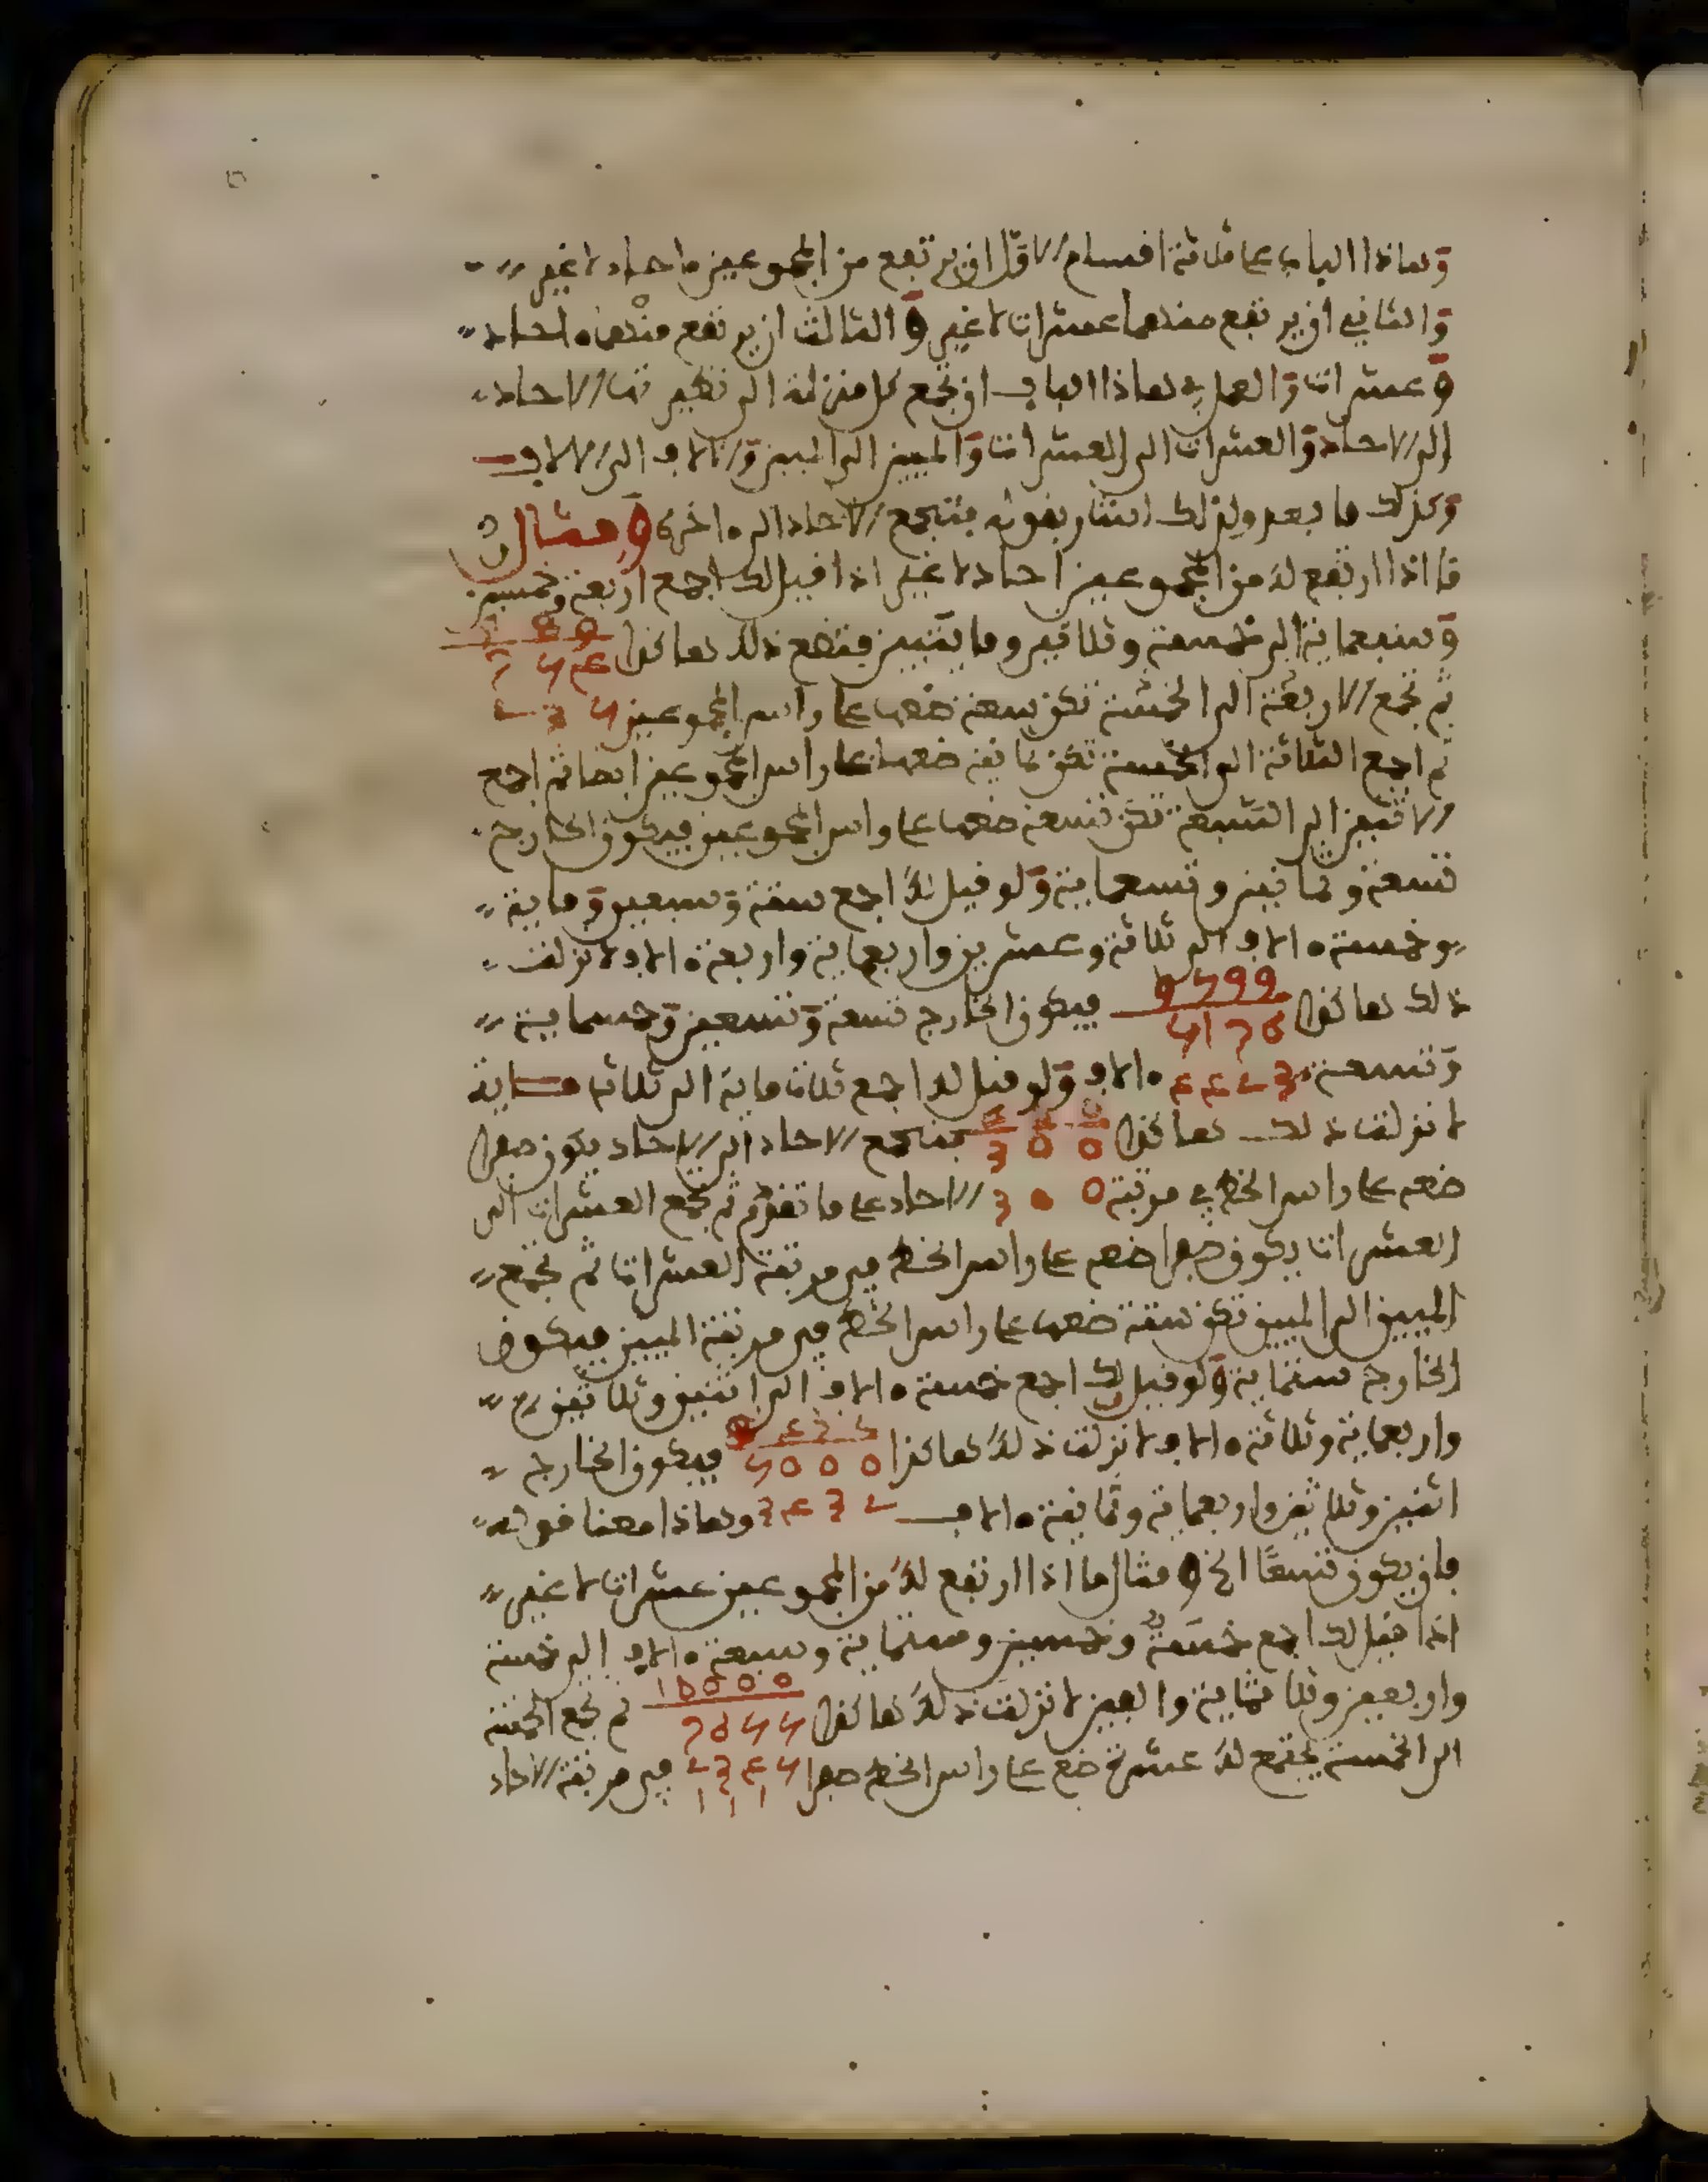 وهاذا الباب على ثلاثة افسام الاول ان يرتفع من المجموعين ءاحاد لا غير
والثاني ان يرتفع منهما عشرات لا غير والثالث ان يرتفع منهما ءاحاد
وعشرات والعمل في هاذا الباب ان تجمع كل منزلة الى نظيرتها الاحاد
الى الاحاد والعشرات الى العشرات والميين الى الميين والالاف الى الالاف
وكذلك ما بعد ولذلك اشار بفوله بتجمع الاحاد الى اخرى ومثال
ما اذا ارتفع لك من المجموعين احاد لا غير اذا فيل لك اجمع اربعة وخمسين
وسبعماية الى خمسة وثلاثين ومايتين فتضع ذلك هاكذا 9 8 9 7 5 4
ثم تجمع الاربعة الى الخمسة تكن تسعة ضعها على راس المجموعين 5 3 2
ثم اجمع الثلاثة الى الخمسة تكن ثمانية ضعها على راس المجموعين ايضا ثم اجمع
الاثنين الى السبعة تكن تسعة ضعها على راس المجموعين فيكون الخارج
تسعة وثمانين وتسعماية ولو فيل لك اجمع ستة وسبعين وماية
وخمسة ءالاف الى ثلاثة وعشرين واربعماية واربعة ءالاف لانزلت
ذلك هاكذا 9599 5176 فيكون الخارج تسعة وتسعين وخمسماية
وتسعة 4423 ءالاف ولو فيل لك اجمع ثلاث ماية الى ثلاث ماية
لانزلت ذلك هاكذا 6 0 0 3 0 0 فتجمع الاحاد الى الاحاد يكون صفرا
ضعه على راس الخط في مرتبة 3 0 0 الاحاد على ما تقدم ثم تجمع العشرات الى
العشرات يكون صفرا ضعه على راس الخط في مرتبة العشرات ثم تجمع
الميين الى الميين تكن ستة ضعها على راس الخط في مرتبة الميين فيكون
الخارج ستماية ولو فيل لك اجمع خمسة ءالاف الى اثنين وثلاثين
واربعماية وثلاثة ءالاف لانزلت ذلك هاكذا 8432 5000 فيكون الخارج
اثنين وثلاثين واربعماية وثمانية ءالاف 3432 وهاذا معنا فوله
فان يكون تسعا الخ ومثال ما اذا ارتفع لك من المجموعين عشرات لا غير
اذا فيل لك اجمع خمسة وخمسين وستماية وسبعة ءالاف الى خمسة
واربعين وثلاثماية والفين لانزلت ذلك هاكذا 10000 7655 ثم تجمع الخمسة
الى الخمسة يجتمع لك عشرة ضع على راس الخط صفرا 2345 في مرتبة الاحاد
1 1 1